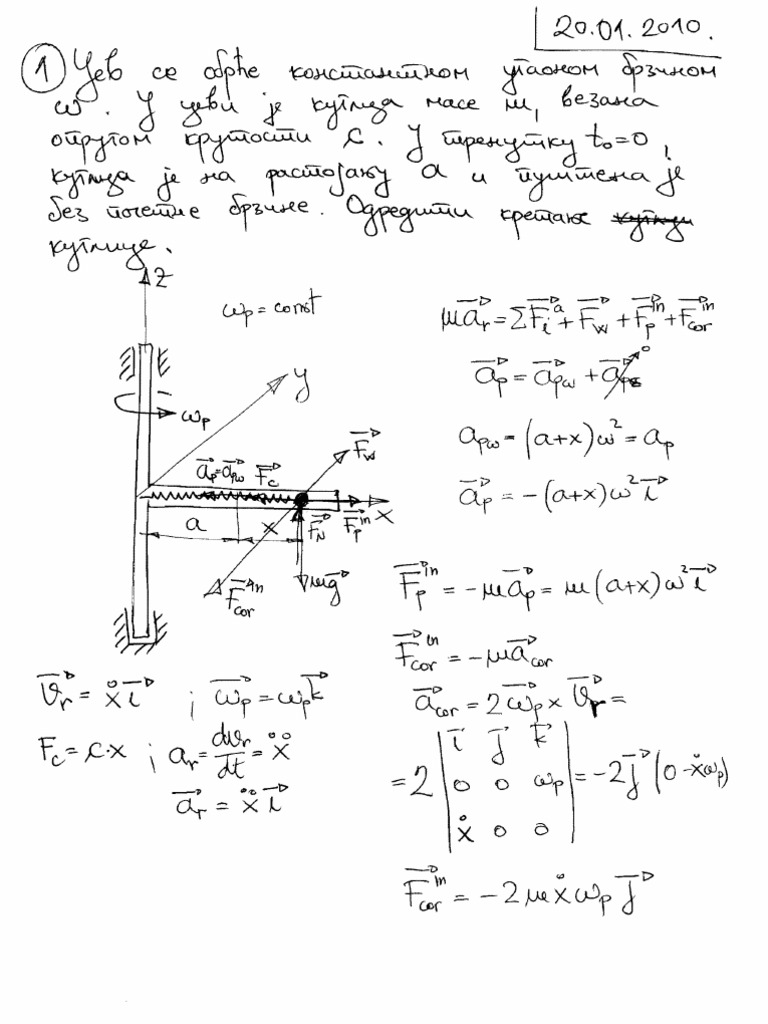 20.01.2010.
① Цев се обрће константном угаоном брзином
ω. У цеви је куглица масе m, везана
опругом крутости c. У тренутку t₀=0,
куглица је на растојању a и пуштена је
без почетне брзине. Одредити кретање
куглице.
z
ωp = const
y
ωp
a⃗p=a⃗pω F⃗c
F⃗w
a x F⃗N F⃗pⁱⁿ x
F⃗corⁱⁿ mg⃗
v⃗r = ẋ i⃗ ; ω⃗p = ωp k⃗
Fc = c·x ; ar = dvr/dt = ẍ
a⃗r = ẍ i⃗
m a⃗r = ΣF⃗iᵃ + F⃗w + F⃗pⁱⁿ + F⃗corⁱⁿ
a⃗p = a⃗pω + a⃗pε⁰
apω = (a+x)ω² = ap
a⃗p = -(a+x)ω² i⃗
F⃗pⁱⁿ = -m a⃗p = m(a+x)ω² i⃗
F⃗corⁱⁿ = -m a⃗cor
a⃗cor = 2ω⃗p × v⃗r =
= 2 | i⃗ j⃗ k⃗ |
| 0 0 ωp | = -2 j⃗ (0-ẋωp)
| ẋ 0 0 |
F⃗corⁱⁿ = -2mẋωp j⃗